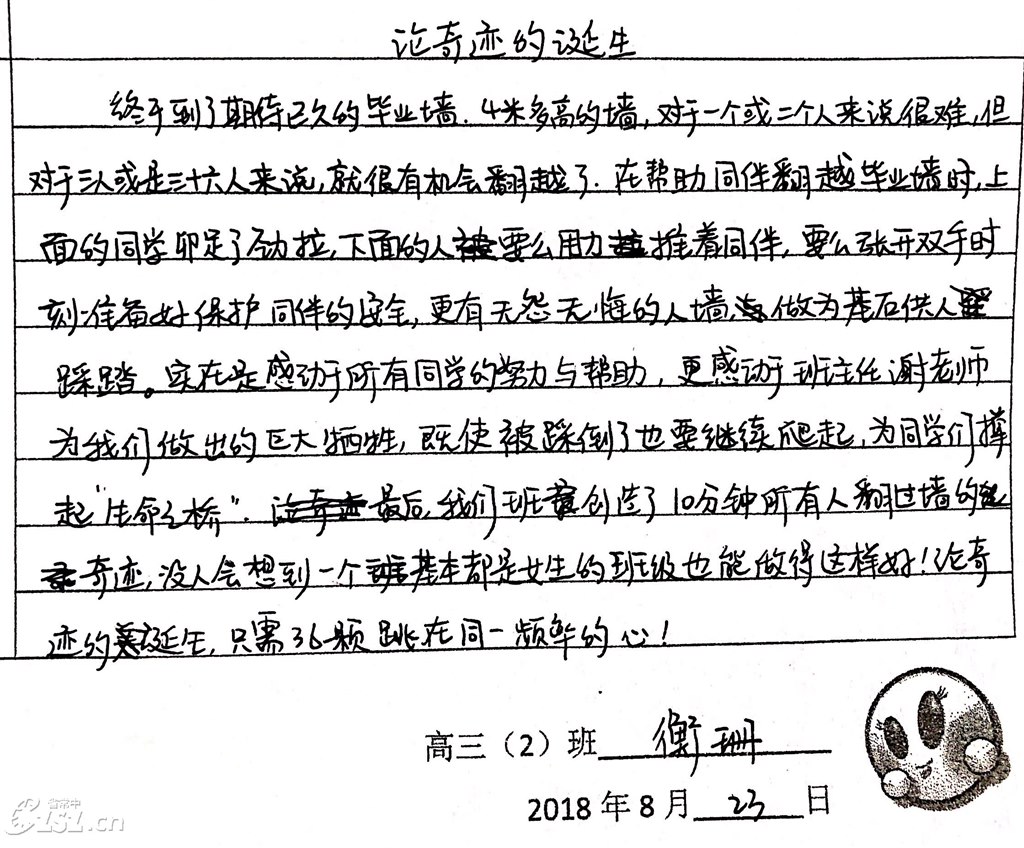 论奇迹的诞生
终于到了期待已久的毕业墙.4米多高的墙,对于一个或二个人来说很难,但
对于三人或是三十六人来说,就很有机会翻越了.在帮助同伴翻越毕业墙时,上
面的同学卯足了劲拉,下面的人要么用力推着同伴,要么张开双手时
刻准备好保护同伴的安全,更有无怨无悔的人墙,做为基石供人
踩踏。实在是感动于所有同学的努力与帮助,更感动于班主任谢老师
为我们做出的巨大牺牲,既使被踩倒了也要继续爬起,为同学们撑
起"生命之桥".最后,我们班创造了10分钟所有人翻过墙的
奇迹,没人会想到一个基本都是女生的班级也能做得这样好!论奇
迹的诞生,只需36颗跳在同一频率的心!
高三(2)班 衡珊
2018年8月23日
省常中
1S1.cn